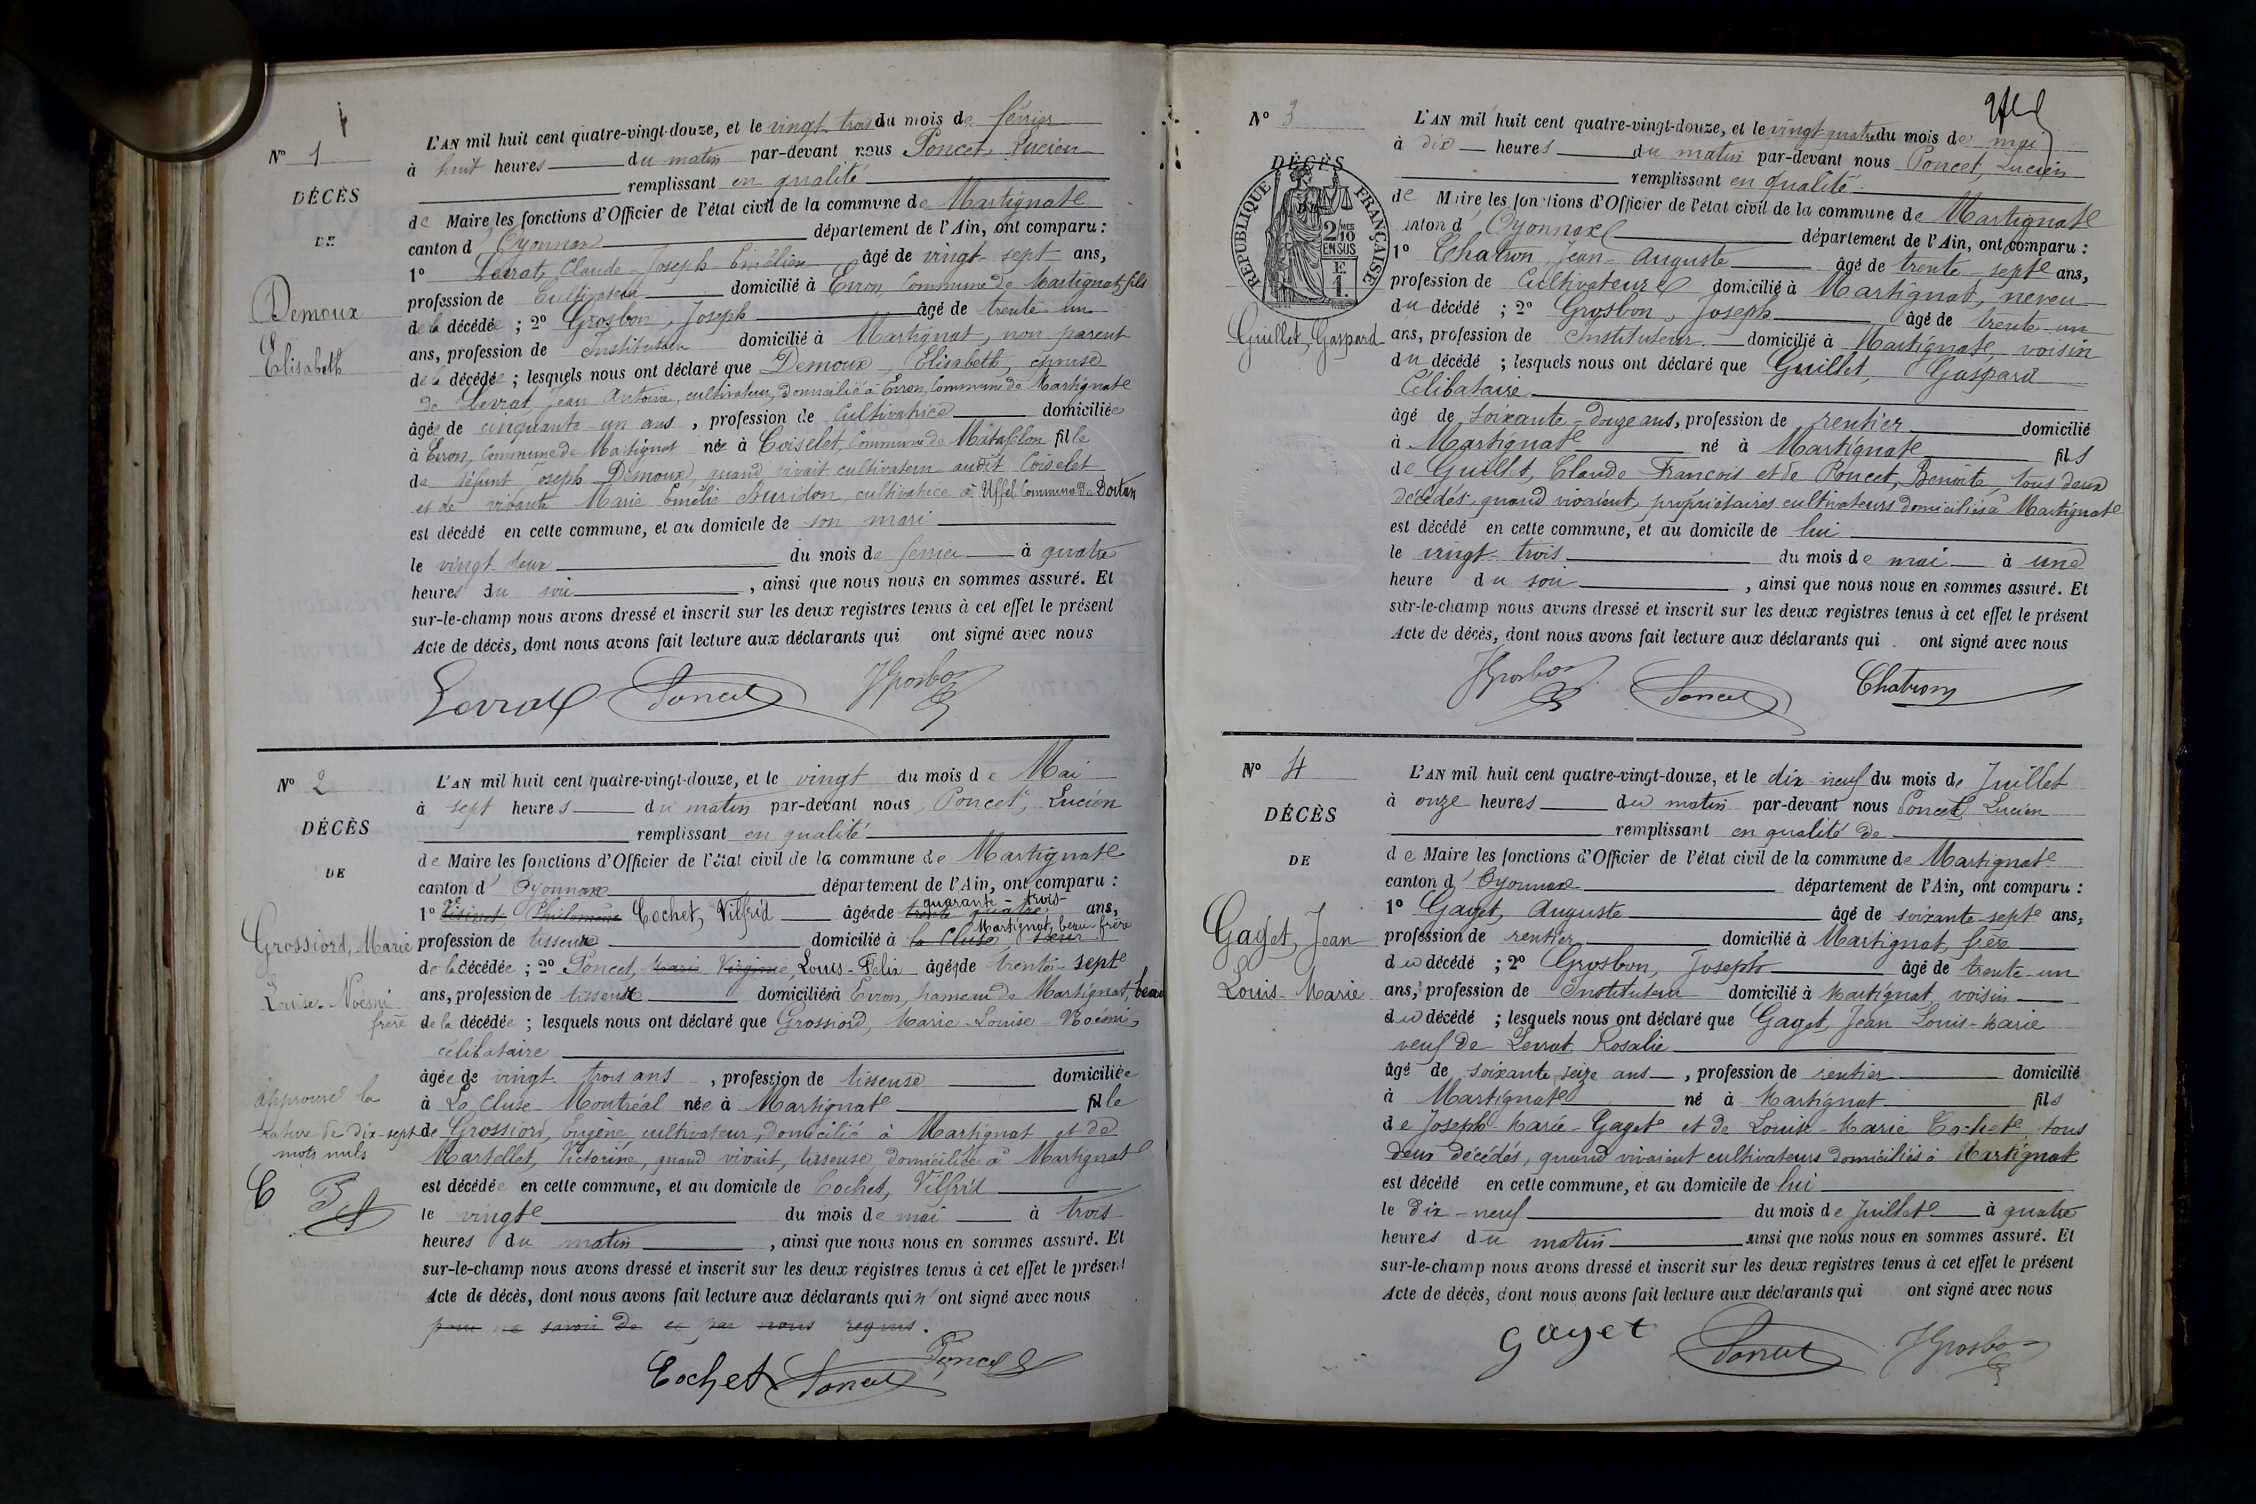 N° 1
DÉCÈS
DE
Demoux
Elisabeth
L'AN mil huit cent quatre-vingt-douze, et le vingt trois du mois de février
à huit heures du matin par-devant nous Poncet, Lucien
remplissant en qualité
de Maire les fonctions d'Officier de l'état civil de la commune de Martignat
canton d'Oyonnax département de l'Ain, ont comparu :
1° Levrat, Claude-Joseph Emélien âgé de vingt-sept ans,
profession de Cultivateur domicilié à Evron, Commune de Martignat, fils
de la décédée ; 2° Grosbon, Joseph âgé de trente-un
ans, profession de Instituteur domicilié à Martignat, non parent
de la décédée ; lesquels nous ont déclaré que Demoux, Elisabeth, épouse
de Levrat, Jean Antoine, cultivateur, domicilié à Evron, Commune de Martignat
âgée de cinquante-un ans, profession de Cultivatrice domiciliée
à Evron, Commune de Martignat née à Coiselet, Commune de Matafelon fille
de défunt Joseph Demoux, quand vivait cultivateur audit Coiselet
et de vivante Marie Emélie Buridon, cultivatrice à Uffel Commune de Dortan
est décédé en cette commune, et au domicile de son mari
le vingt-deux du mois de février à quatre
heures du soir, ainsi que nous nous en sommes assuré. Et
sur-le-champ nous avons dressé et inscrit sur les deux registres tenus à cet effet le présent
Acte de décès, dont nous avons fait lecture aux déclarants qui ont signé avec nous
Levrat Poncet JGrosbon
N° 2
DÉCÈS
DE
Grossiord, Marie
Louise-Noémi
frère
Approuvé la
rature de dix-sept
mots nuls
C P
L'AN mil huit cent quatre-vingt-douze, et le vingt du mois de Mai
à sept heures du matin par-devant nous Poncet, Lucien
remplissant en qualité
de Maire les fonctions d'Officier de l'état civil de la commune de Martignat
canton d'Oyonnax département de l'Ain, ont comparu :
quarante-trois
1° Philomène Cochet, Vilfrid âgé de trente quatre ans,
Martignat, beau frère
profession de tisseur domicilié à la Cluse soeur
de la décédée ; 2° Poncet, Marie Virginie, Louis-Félix âgé de trente-sept
ans, profession de tisseur domicilié à Evron, hameau de Martignat, beau
de la décédée ; lesquels nous ont déclaré que Grossiord, Marie-Louise-Noémi,
célibataire
âgée de vingt-trois ans, profession de tisseuse domiciliée
à La Cluse-Montréal née à Martignat fille
de Grossiord, Eugène, cultivateur, domicilié à Martignat et de
Martellet, Victorine, quand vivait, tisseuse, domiciliée à Martignat
est décédée en cette commune, et au domicile de Cochet, Vilfrid
le vingt du mois de mai à trois
heures du matin, ainsi que nous nous en sommes assuré. Et
sur-le-champ nous avons dressé et inscrit sur les deux régistres tenus à cet effet le présent
Acte de décès, dont nous avons fait lecture aux déclarants qui n'ont signé avec nous
pour ne savoir de ce par nous requis.
Cochet Poncet Poncet
N° 3
DÉCÈS
RÉPUBLIQUE FRANÇAISE
2/10
EN SUS
E
1
Guillet, Gaspard
L'AN mil huit cent quatre-vingt-douze, et le vingt-quatre du mois de mai
à dix heures du matin par-devant nous Poncet, Lucien
remplissant en qualité
de Maire les fonctions d'Officier de l'état civil de la commune de Martignat
canton d'Oyonnax département de l'Ain, ont comparu :
1° Chatron, Jean-Auguste âgé de trente-sept ans,
profession de Cultivateur domicilié à Martignat, neveu
du décédé ; 2° Grosbon, Joseph âgé de trente-un
ans, profession de Instituteur domicilié à Martignat, voisin
du décédé ; lesquels nous ont déclaré que Guillet, Gaspard
Célibataire
âgé de soixante-douze ans, profession de rentier domicilié
à Martignat né à Martignat fils
de Guillet, Claude François et de Poncet, Benoîte, tous deux
décédés quand vivaient, propriétaires cultivateurs domiciliés à Martignat
est décédé en cette commune, et au domicile de lui
le vingt-trois du mois de mai à une
heure du soir, ainsi que nous nous en sommes assuré. Et
sur-le-champ nous avons dressé et inscrit sur les deux registres tenus à cet effet le présent
Acte de décès, dont nous avons fait lecture aux déclarants qui ont signé avec nous
JGrosbon Poncet Chatron
N° 4
DÉCÈS
DE
Gaget, Jean
Louis-Marie
L'AN mil huit cent quatre-vingt-douze, et le dix-neuf du mois de Juillet
à onze heures du matin par-devant nous Poncet, Lucien
remplissant en qualité de
de Maire les fonctions d'Officier de l'état civil de la commune de Martignat
canton d'Oyonnax département de l'Ain, ont comparu :
1° Gaget, Auguste âgé de soixante-sept ans,
profession de rentier domicilié à Martignat, frère
du décédé ; 2° Grosbon, Joseph âgé de trente-un
ans, profession de Instituteur domicilié à Martignat, voisin
du décédé ; lesquels nous ont déclaré que Gaget, Jean Louis-Marie
veuf de Levrat, Rosalie
âgé de soixante seize ans, profession de rentier domicilié
à Martignat né à Martignat fils
de Joseph-Marie-Gaget et de Louise-Marie Cochet, tous
deux décédés, quand vivaient cultivateurs domiciliés à Martignat
est décédé en cette commune, et au domicile de lui
le dix-neuf du mois de Juillet à quatre
heures du matin ainsi que nous nous en sommes assuré. Et
sur-le-champ nous avons dressé et inscrit sur les deux registres tenus à cet effet le présent
Acte de décès, dont nous avons fait lecture aux déclarants qui ont signé avec nous
Gaget Poncet JGrosbon